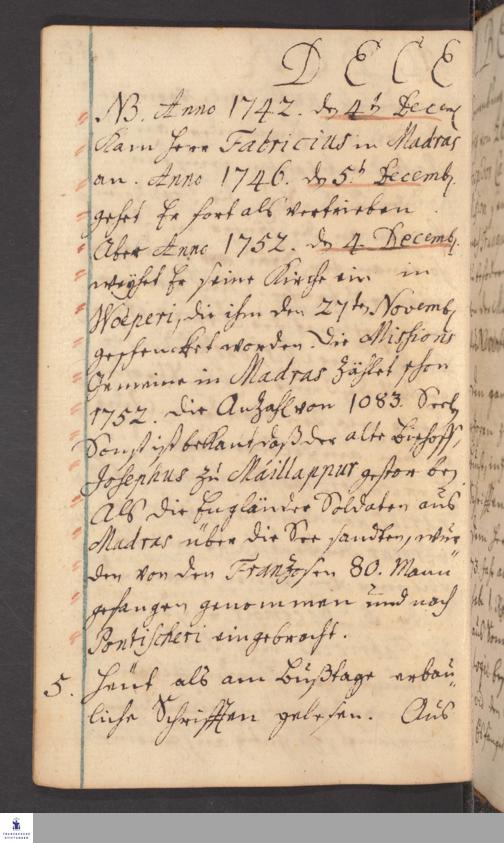 D E C E
NB. Anno 1742. d 4t Decem
kam Herr Fabricius in Madras
an. Anno 1746. d 5t Decemb.
gehet Er fort als vertrieben.
Aber Anno 1752. d 4. Decemb.
weyhet Er seine Kirche ein in
Weperi, die ihm den 27ten Novemb.
geschencket worden. Die Missions
Gemeine in Madras zählet schon
1752. die Anzahl von 1083. Seel
Sonst ist bekant, daß der alte Bischoff,
Josephus zu Maillappur gestorben.
Als die Engländer Soldaten aus
Madras über die See sandten, wur
den von den Frantzosen 80. Mann
gefangen genommen und nach
Pontischeri eingebracht.
5. Heut als am Bußtage erbau
liche Schrifften gelesen. Aus
FRANCKESCHE
STIFTUNGEN